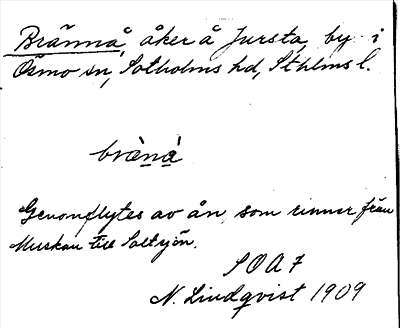 Brännå, åker å Jursta, by i
Ösmo sn, Sotholms hd, Sthlms l.
brænå
Genomflytes av ån, som rinner från
Muskan till Saltsjön.
SOA 7
N. Lindqvist 1909